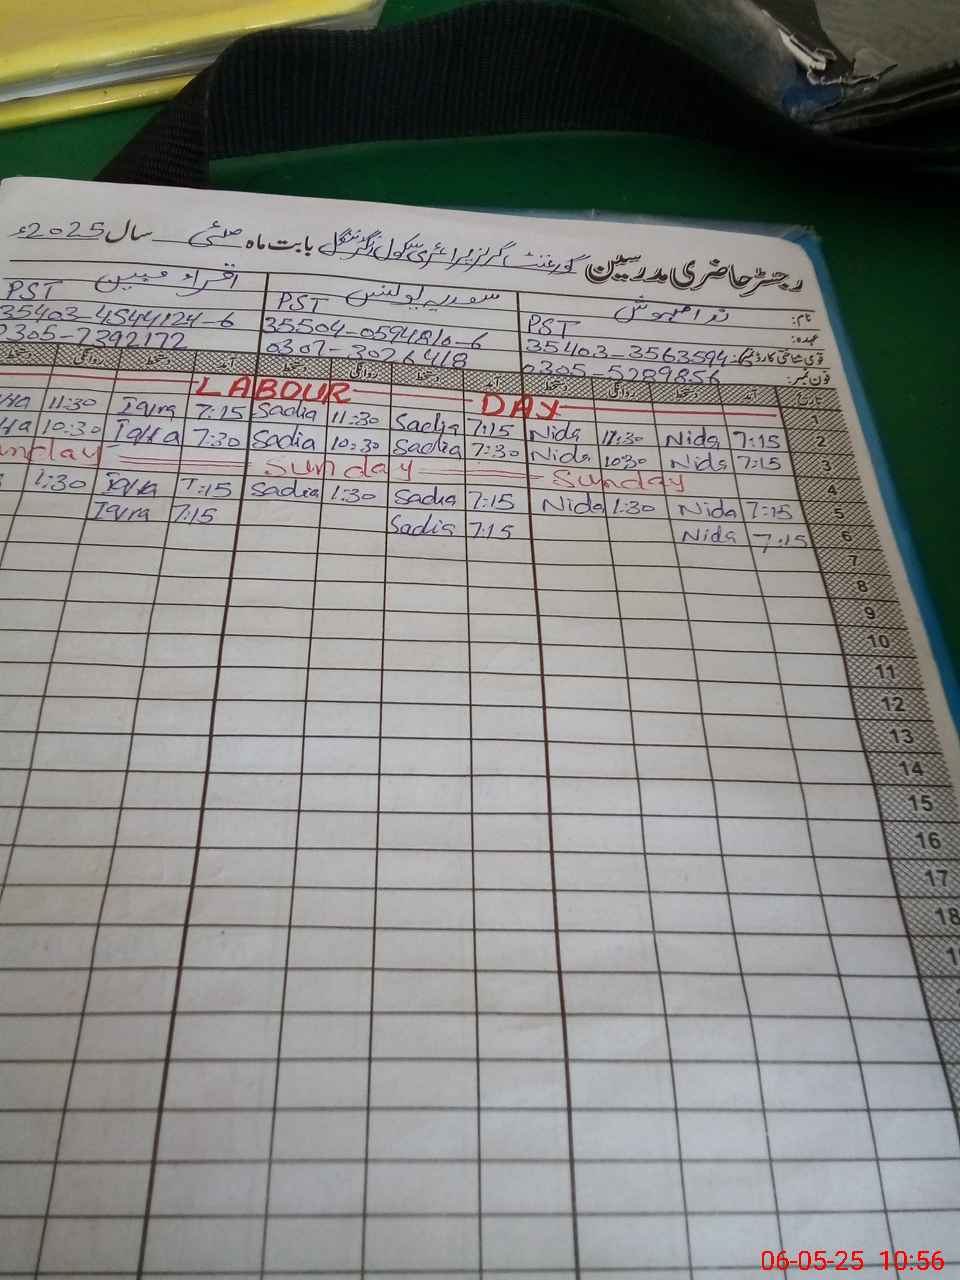 رجسٹر حاضری مدرسین گورنمنٹ گرلز پرائمری سکول بابت ماہ مئی سال 2025ء
نام: ندا مہوش سعدیہ یونس اقراء مبین
عہدہ: PST PST PST
قومی شناختی کارڈ نمبر: 35403-3563594 35504-0594810-6 35403-4544124-6
فون نمبر: 0305-5289856 0307-3026418 0305-7392172
تاریخ آمد دستخط روانگی دستخط آمد دستخط روانگی دستخط آمد دستخط روانگی دستخط
LABOUR DAY 1
11:30 Iqra 7:15 Sadia 11:30 Sadia 7:15 Nida 11:30 Nida 7:15 2
10:30 Iqra 7:30 Sadia 10:30 Sadia 7:30 Nida 10:30 Nida 7:15 3
Sunday Sunday 4
1:30 Iqra 7:15 Sadia 1:30 Sadia 7:15 Nida 1:30 Nida 7:15 5
Iqra 7:15 Sadia 7:15 Nida 7:15 6
7
8
9
10
11
12
13
14
15
16
17
18
06-05-25 10:56